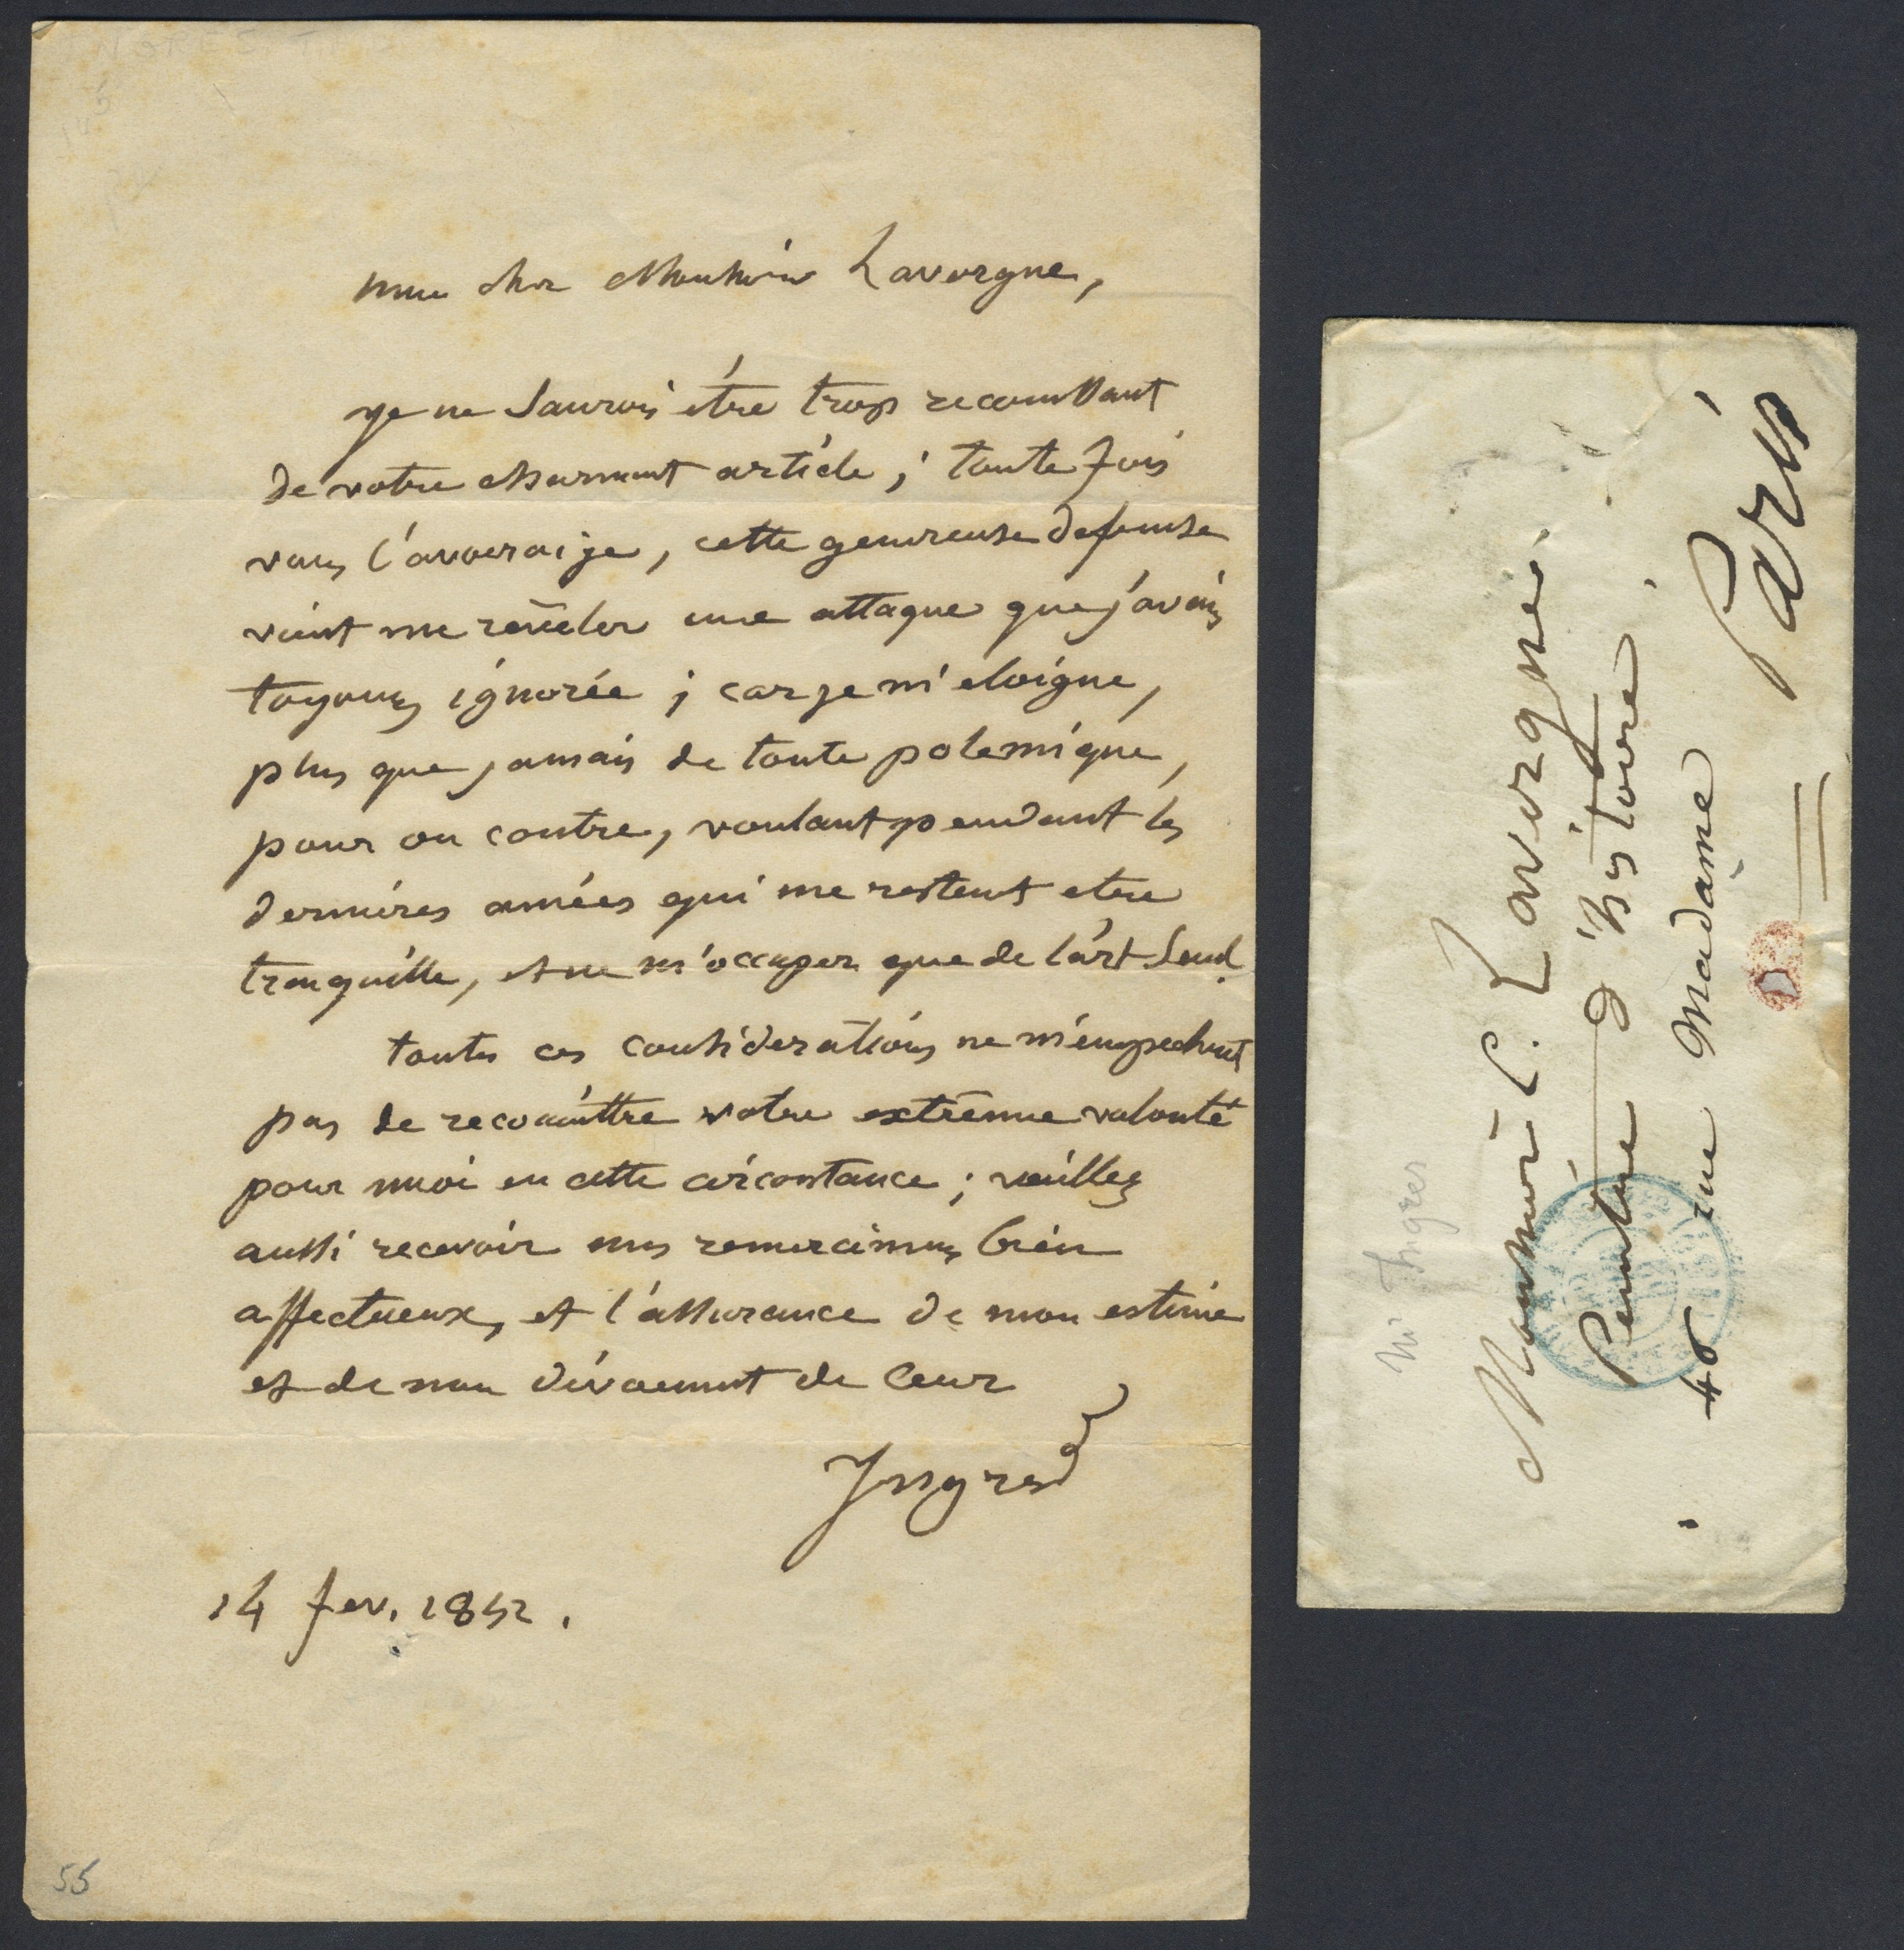 mon cher Monsieur Lavergne,
je ne saurois être trop reconnoissant
de votre charmant article; toute fois
vous l'avoueraije, cette genereuse defense
vient me réveler une attaque que j'avais
toujours ignorée; car je m'eloigne,
plus que jamais de toute polemique,
pour ou contre, voulant pendant les
dernieres années qui me restent etre
tranquille, et ne m'occuper que de l'art seul.
toutes ces considerations ne m'empechent
pas de reconnoittre votre extrême volonté
pour moi en cette circonstance; veuillez
aussi recevoir mes remercimens bien
affectueux, et l'assurance de mon estime
et de mon dévouement de cœur
Ingres
14 fev. 1852.
55
Mr Ingres
Monsieur C. Lavergne.
Peintre d'histoire
rue Madame
Paris